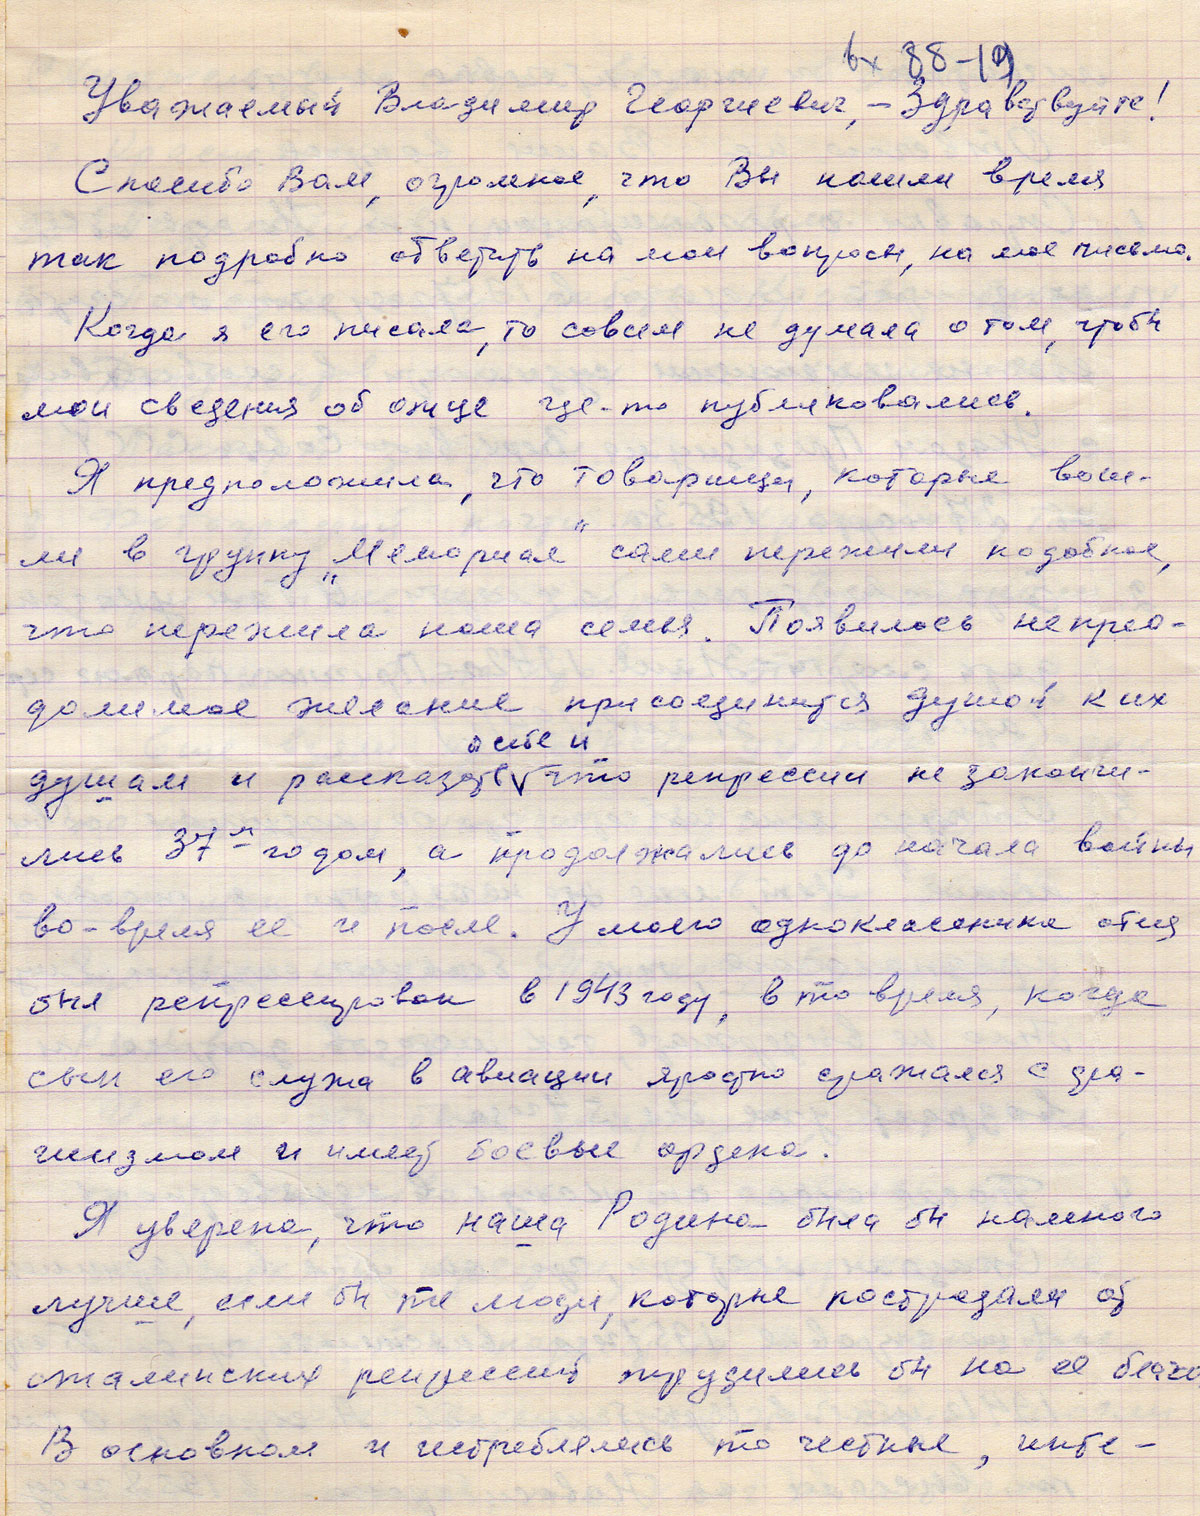 вх 88-19
Уважаемый Владимир Георгиевич, – Здравствуйте!
Спасибо Вам, огромное, что Вы нашли время
так подробно ответить на мои вопросы, на мое письмо.
Когда я его писала, то совсем не думала о том, чтобы
мои сведения об отце где-то публиковались.
Я предположила, что товарищи, которые вош-
ли в группу „Мемориал" сами пережили подобное,
что пережила наша семья. Появилось непрео-
долимое желание присоединится душой к их
о себе и
душам и рассказать что репрессии не закончи-
лись 37м годом, а продолжались до начала войны
во-время ее и после. У моего одноклассника отец
был репрессирован в 1943 году, в то время, когда
сын его служа в авиации яростно сражался с фа-
шизмом и имеет боевые ордена.
Я уверена, что наша Родина была бы намного
лучше, если бы те люди, которые пострадали от
сталинских репрессий трудились бы на ее благо
В основном и истреблялись то честные, инте-